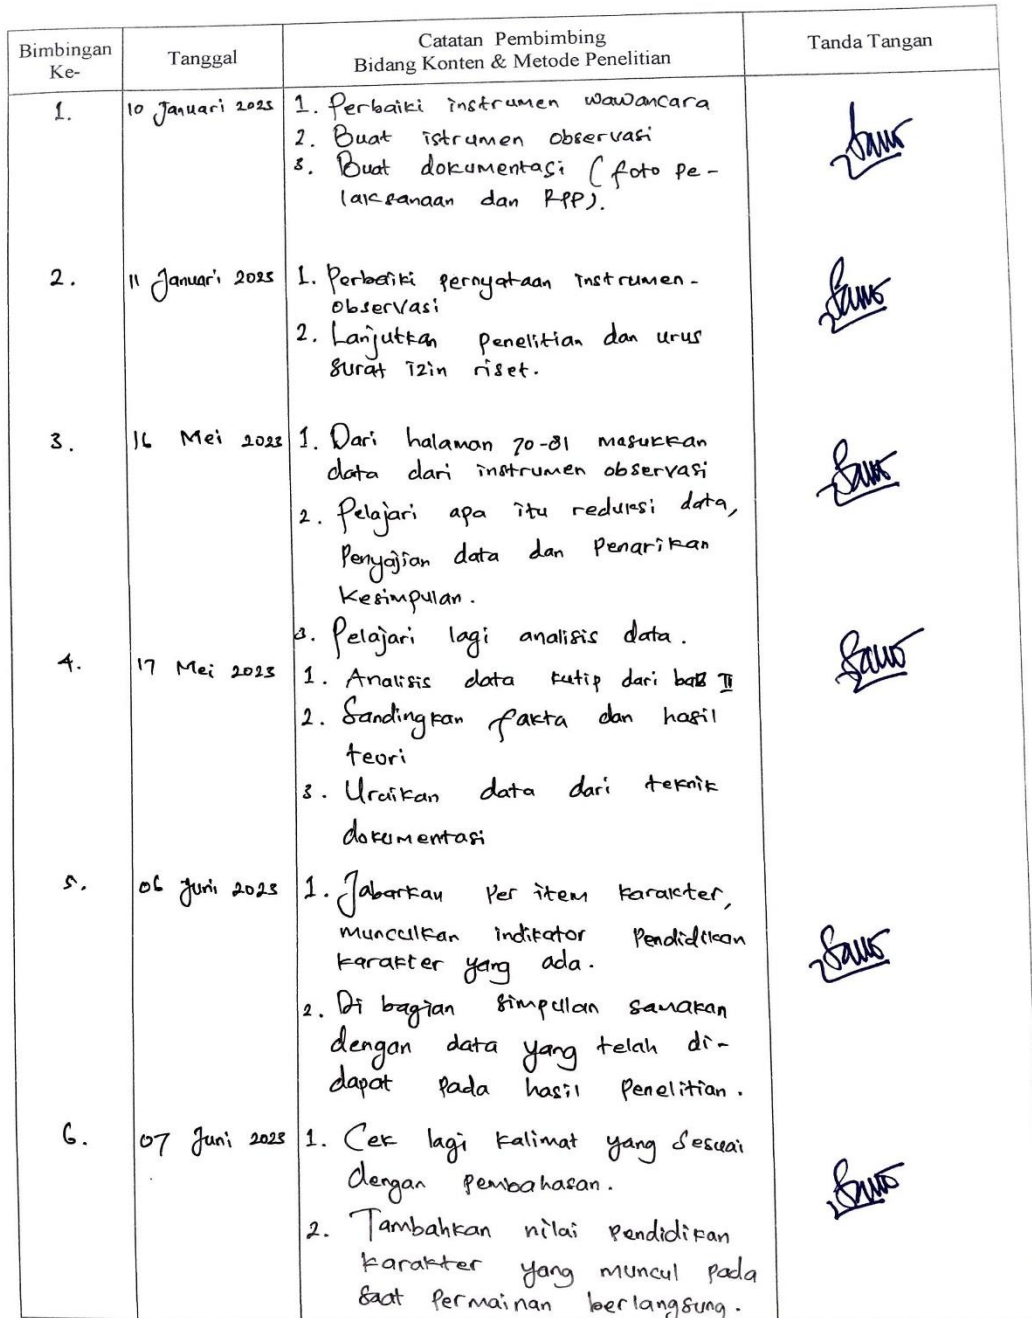 Bimbingan Ke-
Tanggal
Catatan Pembimbing
Bidang Konten & Metode Penelitian
Tanda Tangan
1.
10 Januari 2023
1. Perbaiki instrumen wawancara
2. Buat istrumen observasi
3. Buat dokumentasi (foto pe-
laksanaan dan RPP).
2.
11 Januari 2023
1. Perbaiki pernyataan instrumen-
observasi
2. Lanjutkan penelitian dan urus
surat izin riset.
3.
16 Mei 2023
1. Dari halaman 70-81 masukkan
data dari instrumen observasi
2. Pelajari apa itu reduksi data,
Penyajian data dan Penarikan
Kesimpulan.
3. Pelajari lagi analisis data.
4.
17 Mei 2023
1. Analisis data kutip dari bab II
2. Sandingkan fakta dan hasil
teori
3. Uraikan data dari teknik
dokumentasi
5.
06 Juni 2023
1. Jabarkan Per item karakter,
munculkan indikator Pendidikan
karakter yang ada.
2. Di bagian simpulan samakan
dengan data yang telah di-
dapat pada hasil Penelitian.
6.
07 Juni 2023
1. Cek lagi kalimat yang sesuai
dengan pembahasan.
2. Tambahkan nilai pendidikan
karakter yang muncul pada
saat Permainan berlangsung.